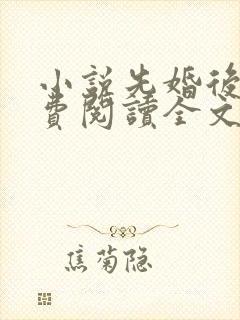 小說先婚後
費閱讀全文
焦菊隐